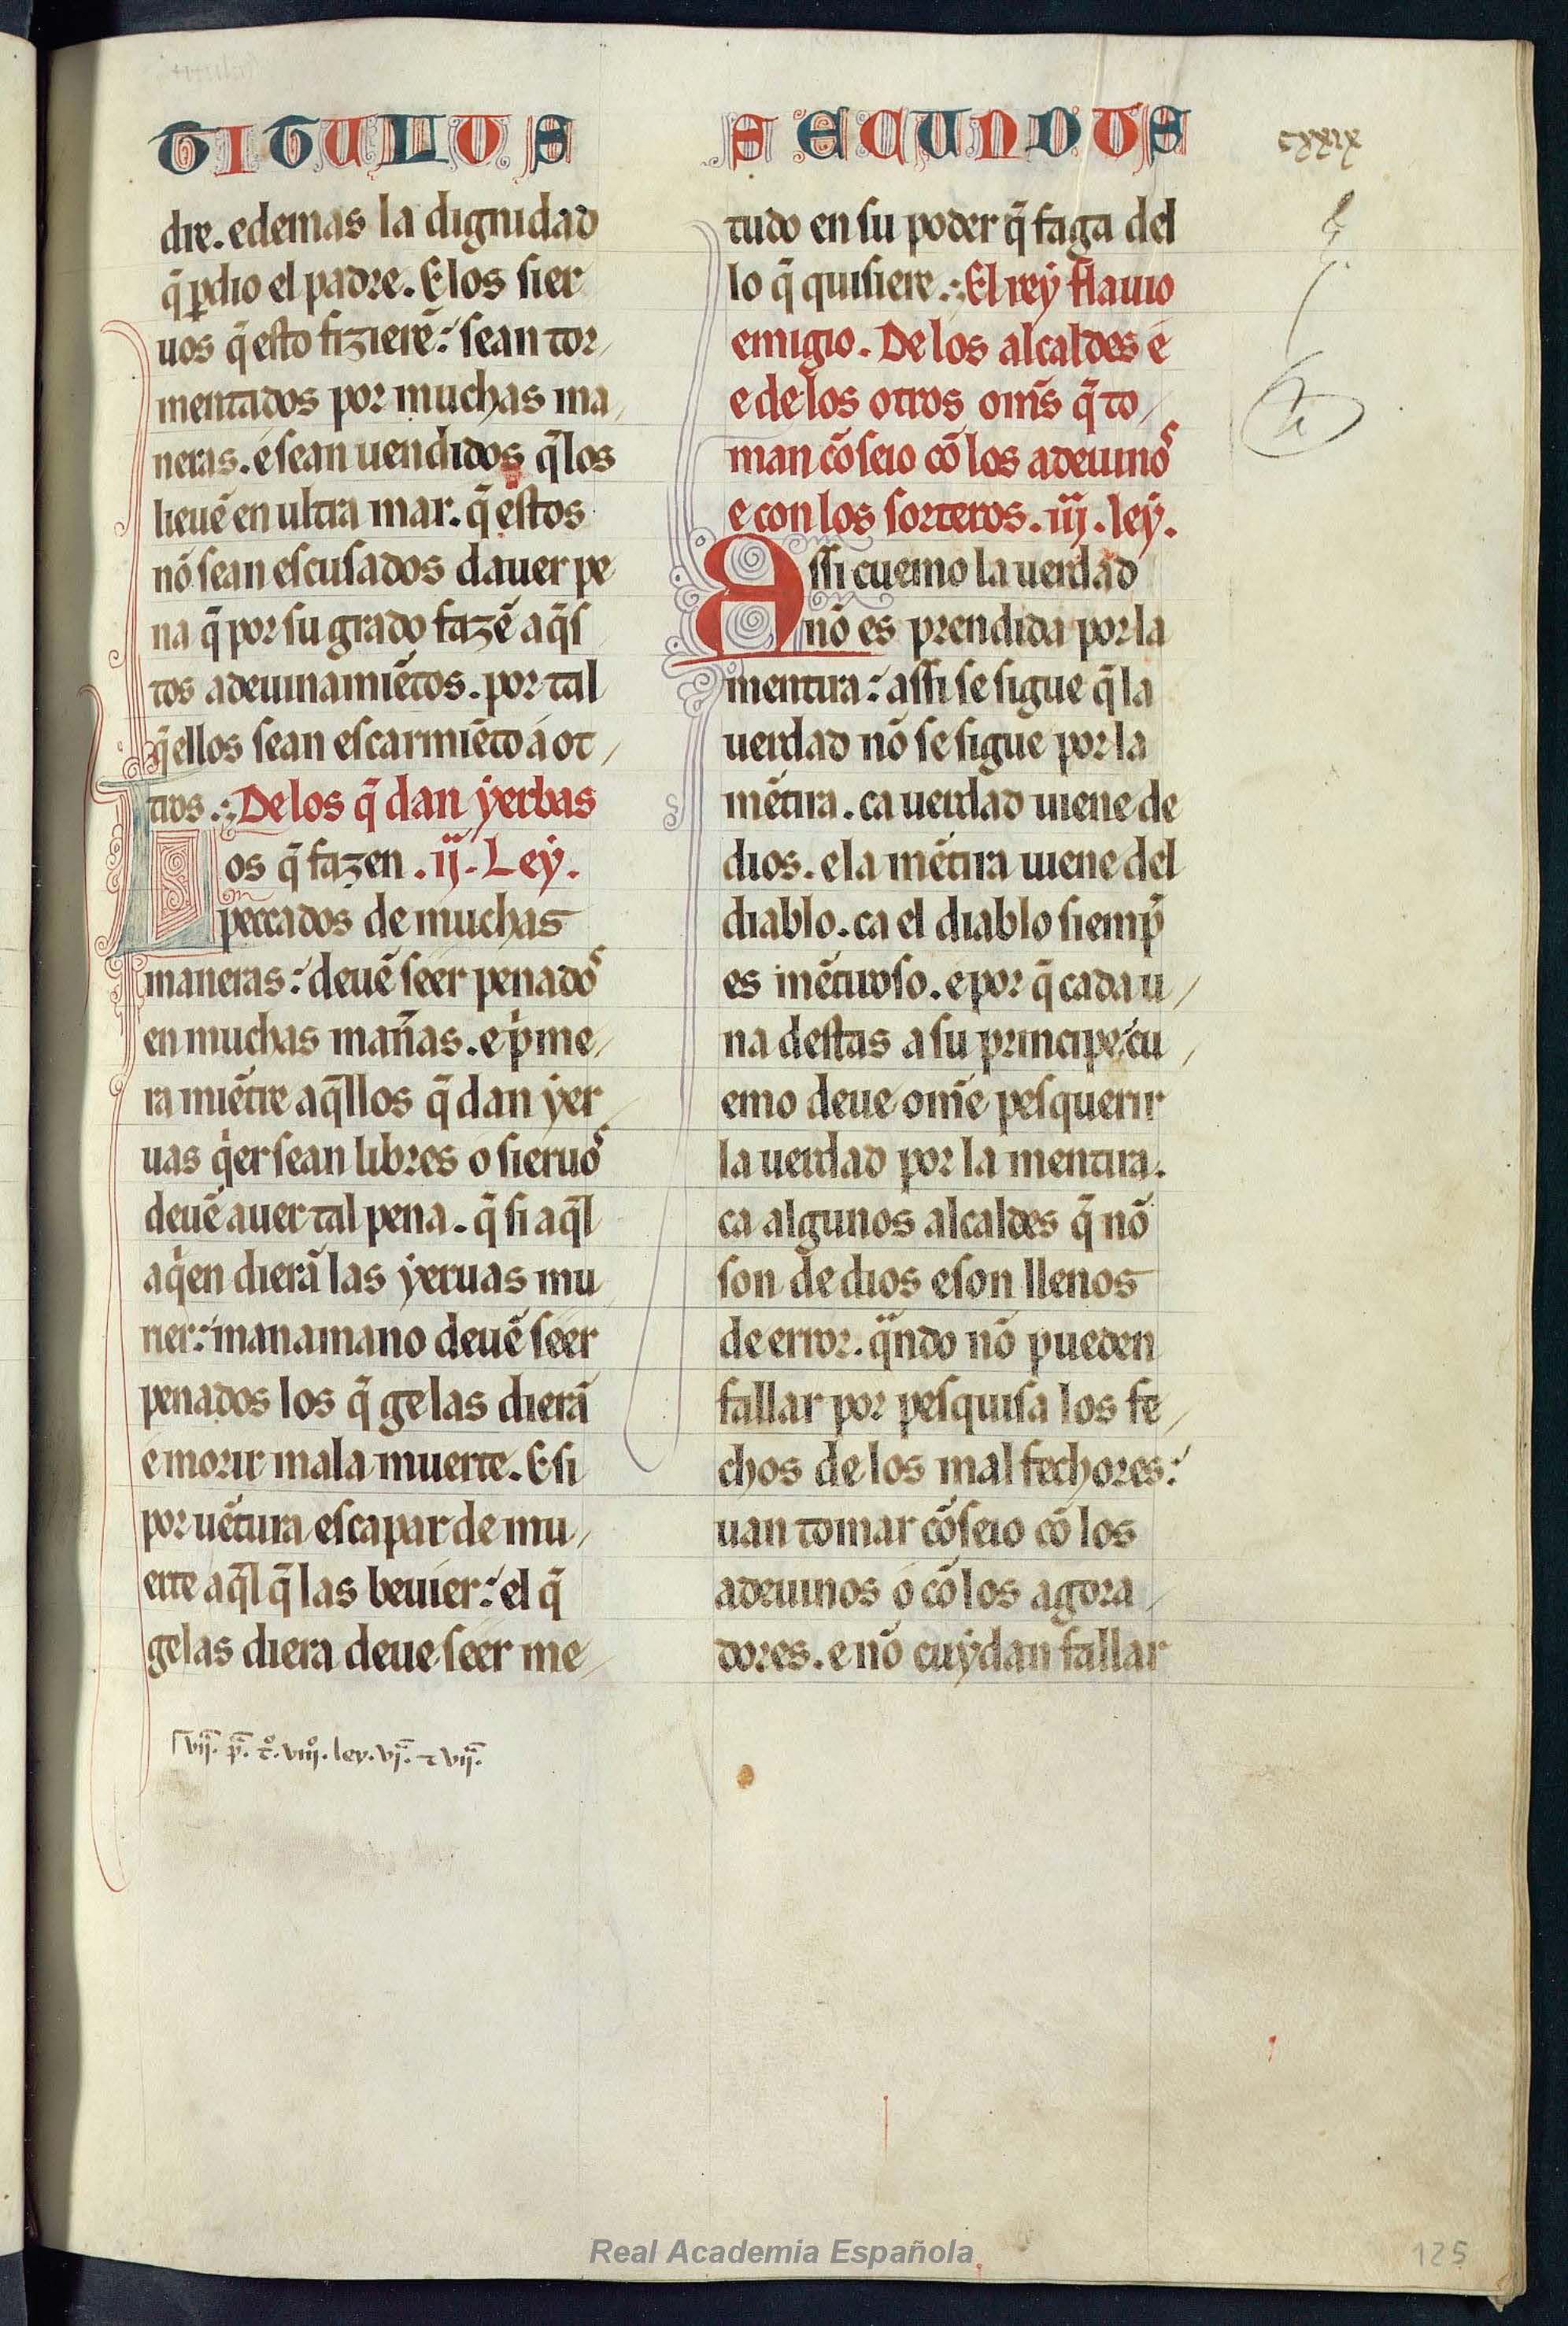 TITULUS
SECUNDUS
cxxix
dre. edemas la dignidad
q̃ ꝑdio el padre. Elos sier
uos q̃ esto fizierẽ: sean tor/
mentados por muchas ma/
neras. e sean uendidos q̃ los
lieuẽ en ultra mar. q̃ estos
nõ sean escusados dauer pe
na q̃ por su grado fazẽ aq̃s
tos adeuinamiẽtos. por tal
q̃ ellos sean escarmiẽto á ot/
tros.: De los q̃ dan ẏerbas
Los q̃ fazen .ij. Leẏ.
peccados de muchas
maneras: deuẽ seer penados
en muchas mañas. e pͥme/
ra miẽtre aq̃llos q̃ dan ẏer
uas qͥer sean libres o sieruos
deuẽ auer tal pena. q̃ si aq̃l
a qͥen dierã las ẏeruas mu
rier: manamano deuẽ seer
penados los q̃ ge las dierã
e morir mala muerte. E si
por uẽtura escapar de mu/
erte aq̃l q̃ las beuier: el q̃
gelas diera deue seer me/
vijª. pª. tº. viijº. ley. vjª. ⁊ vijª.
tudo en su poder q̃ faga del
lo q̃ quisiere.: El reẏ flauio
erugio. De los alcaldes e
e de los otros om̃s q̃ to/
man cõseio cõ los adeuinos
e con los sorteros. iij. leẏ.
Assi cuemo la uerdad
nõ es prendida por la
mentira: assi se sigue q̃ la
uerdad nõ se sigue por la
mẽtira. ca uerdad uiene de
dios. e la mẽtira uiene del
diablo. ca el diablo siemp̃
es mẽtiroso. e por q̃ cada u/
na destas a su principe: cu/
emo deue om̃e pesquerir
la uerdad por la mentira.
ca algunos alcaldes q̃ nõ
son de dios e son llenos
de error. qͣndo nõ pueden
fallar por pesquisa los fe/
chos de los mal fechores:
uan tomar cõseio cõ los
adeuinos o cõ los agora/
dores. e nõ cuẏdan fallar
Real Academia Española
125